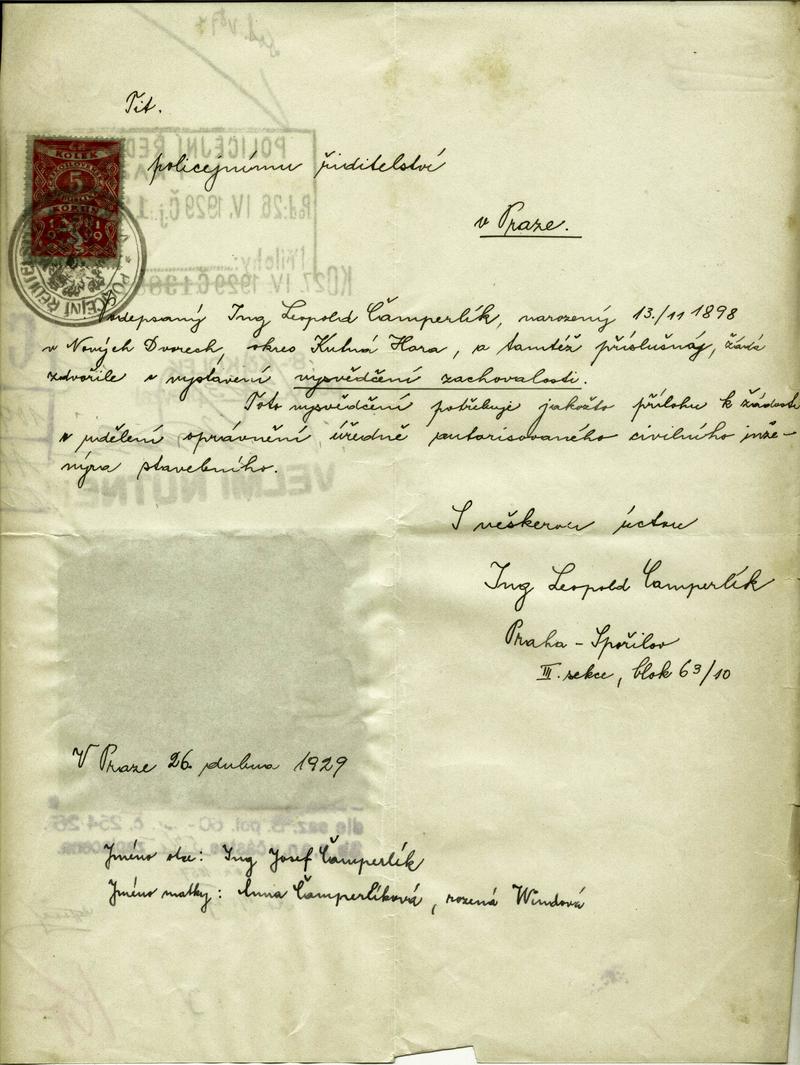 Tit.
policejnímu ředitelství
v Praze.
KOLEK
5
KORUN
1919
POLICEJNÍ ŘEDITEL
Podepsaný Ing Leopold Čamperlík, narozený 13./11 1898
v Nových Dvorech, okres Kutná Hora, a tamtéž příslušný, žádá
zdvořile o vystavení vysvědčení zachovalosti.
Toto vysvědčení potřebuje jakožto přílohu k žádosti
o udělení oprávnění úředně autorisovaného civilního inže-
nýra stavebního.
S veškerou úctou
Ing Leopold Čamperlík
Praha - Spořilov
III. sekce, blok 63/10
V Praze 26. dubna 1929
Jméno otce: Ing Josef Čamperlík
Jméno matky: Anna Čamperlíková, rozená Windová
POLICEJNÍ ŘED
Pod: 26. IV. 1929 Č.j.
Přílohy:
27. IV. 1929
VELMI NUTNÉ
dle saz. pol. č. 254/26